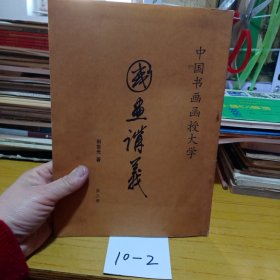 中国书画函授大学
国画讲义
10-2